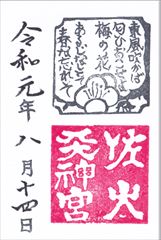 東風吹かば
匂ひおこせよ
梅の花
あるじなしとて
春な忘れそ
佐火
天神宮
令和元年八月十四日